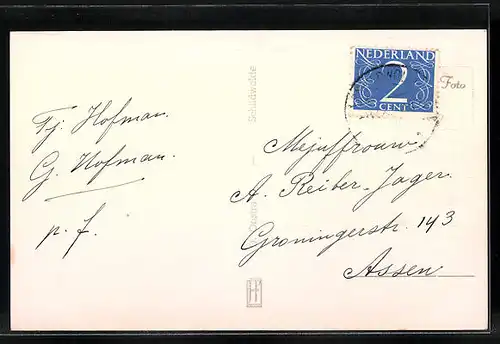 Tj. Hofman.
G. Hofman.
p. f.
Schildwolde
NEDERLAND
2
CENT
Foto
Mejuffrouw
A. Reiber-Jager.
Groningerstr. 143
Assen
H